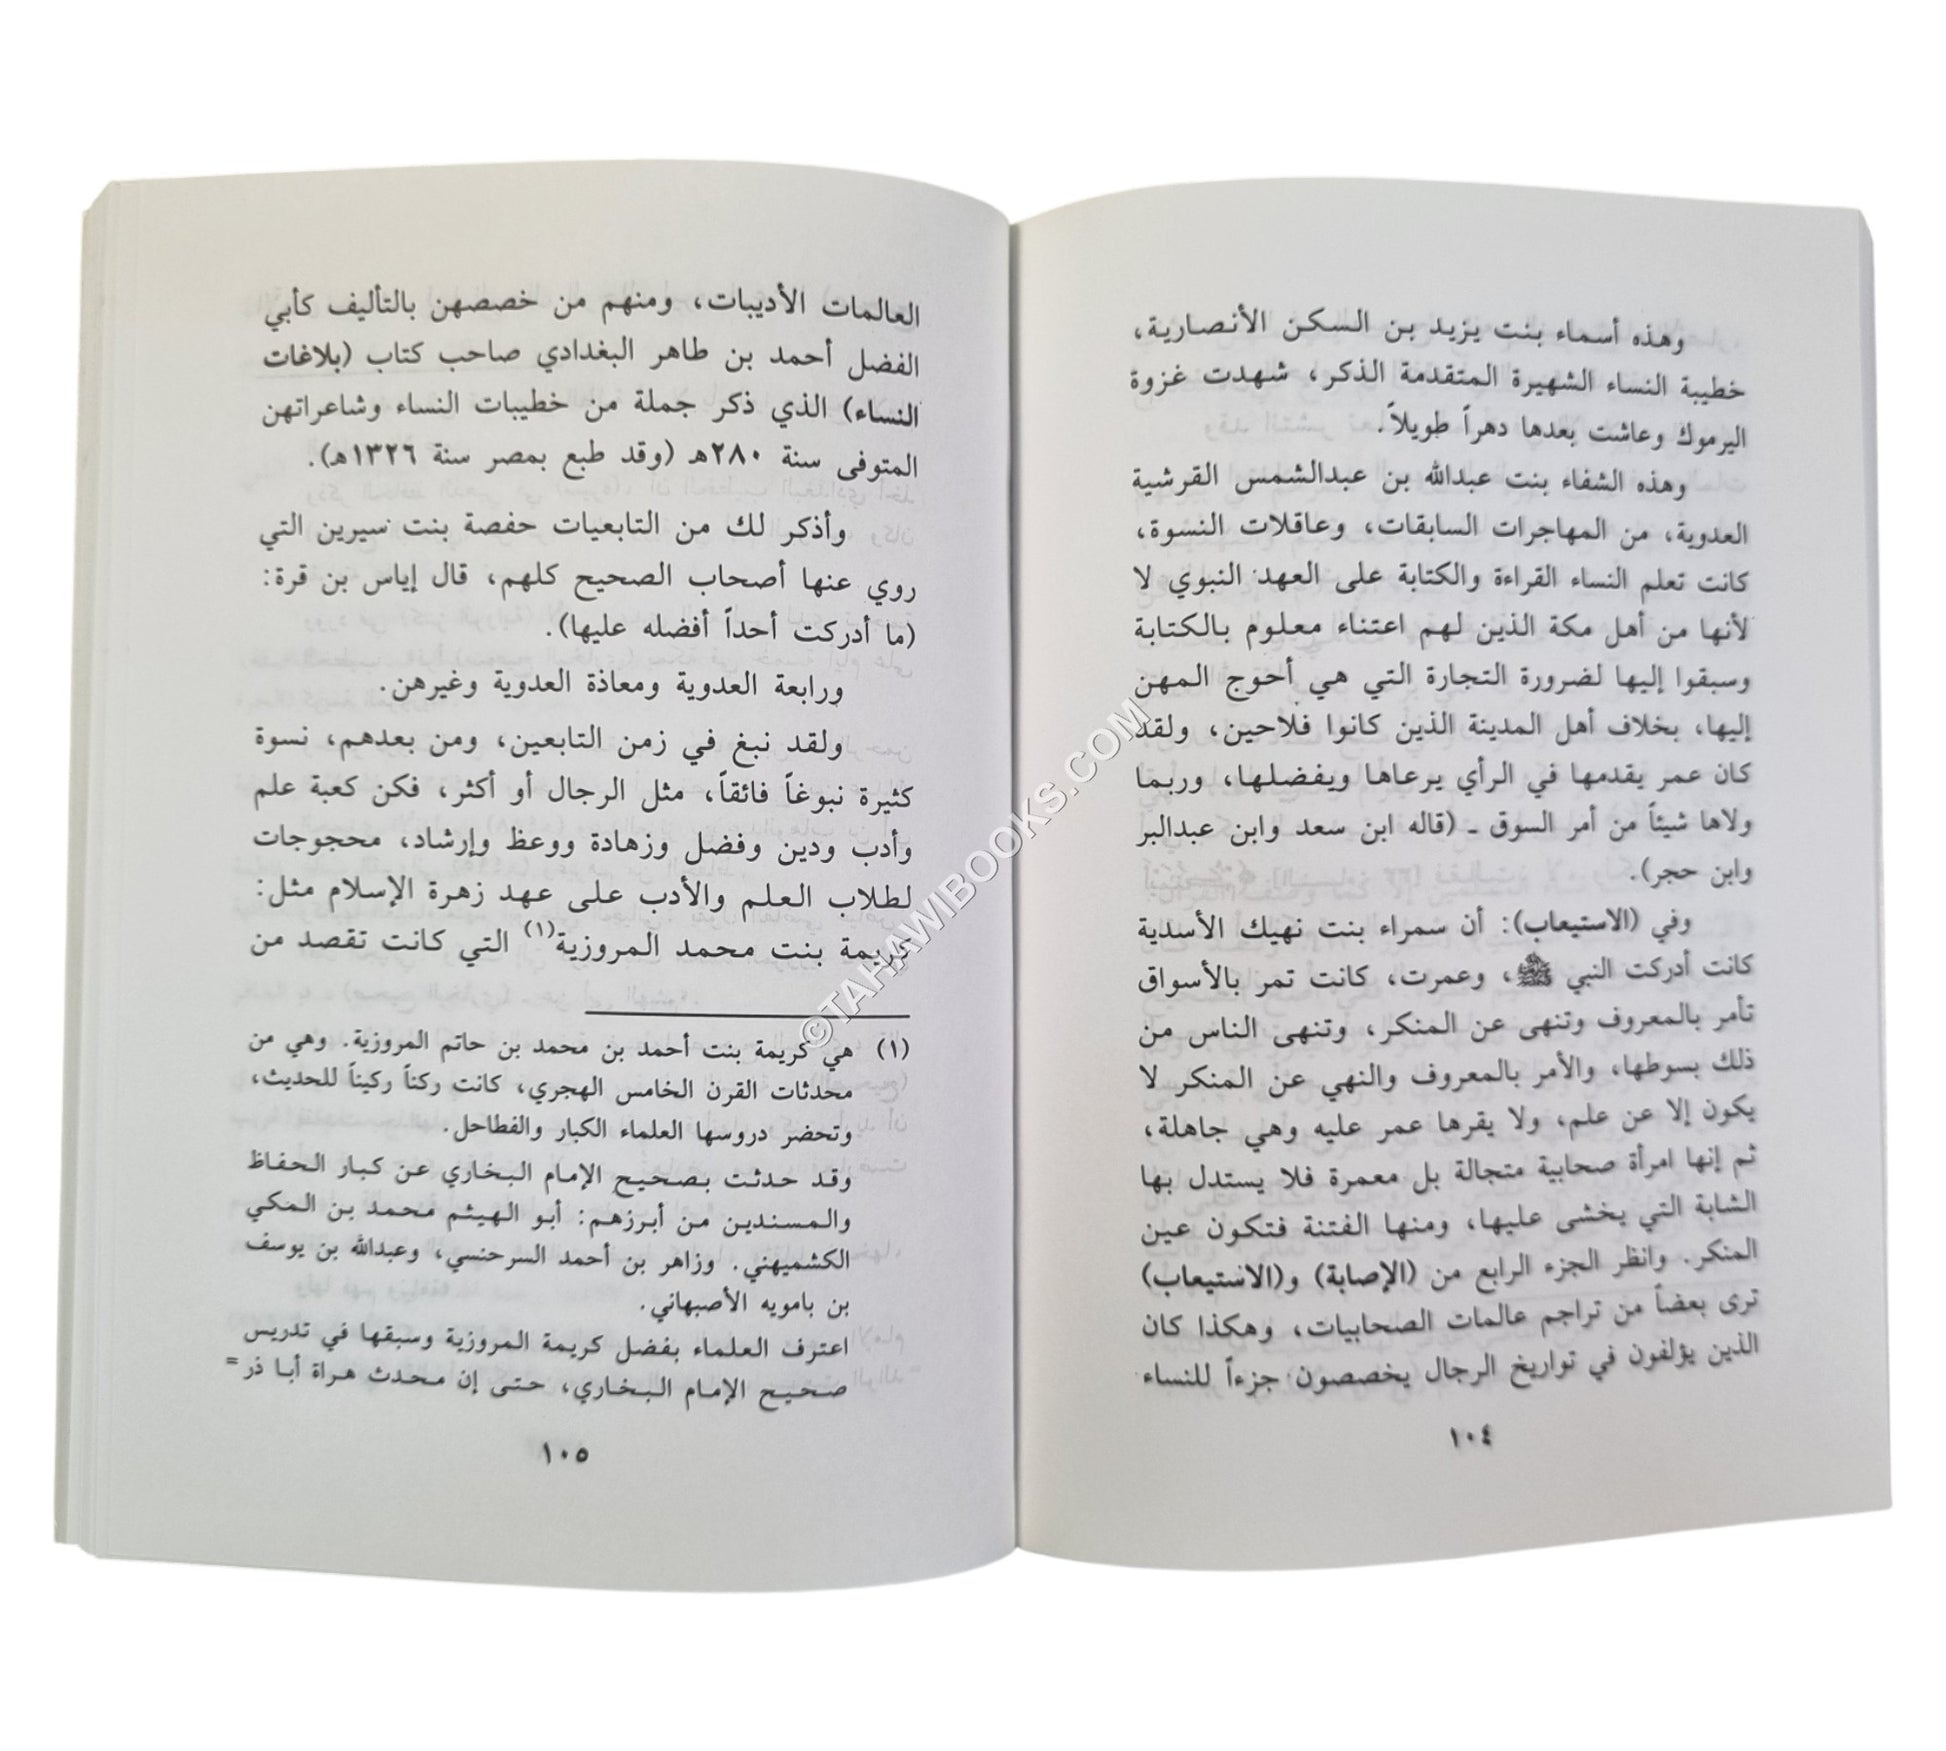 وهذه أسماء بنت يزيد بن السكن الأنصارية،
خطيبة النساء الشهيرة المتقدمة الذكر، شهدت غزوة
اليرموك وعاشت بعدها دهراً طويلاً.
وهذه الشفاء بنت عبدالله بن عبدالشمس القرشية
العدوية، من المهاجرات السابقات، وعاقلات النسوة،
كانت تعلم النساء القراءة والكتابة على العهد النبوي لا
لأنها من أهل مكة الذين لهم اعتناء معلوم بالكتابة
وسبقوا إليها لضرورة التجارة التي هي أحوج المهن
إليها، بخلاف أهل المدينة الذين كانوا فلاحين، ولقد
كان عمر يقدمها في الرأي يرعاها ويفضلها، وربما
ولاها شيئاً من أمر السوق ـ (قاله ابن سعد وابن عبدالبر
وابن حجر).
وفي (الاستيعاب): أن سمراء بنت نهيك الأسدية
كانت أدركت النبي ﷺ، وعمرت، كانت تمر بالأسواق
تأمر بالمعروف وتنهى عن المنكر، وتنهى الناس من
ذلك بسوطها، والأمر بالمعروف والنهي عن المنكر لا
يكون إلا عن علم، ولا يقرها عمر عليه وهي جاهلة،
ثم إنها امرأة صحابية متجالة بل معمرة فلا يستدل بها
الشابة التي يخشى عليها، ومنها الفتنة فتكون عين
المنكر. وانظر الجزء الرابع من (الإصابة) و(الاستيعاب)
ترى بعضاً من تراجم عالمات الصحابيات، وهكذا كان
الذين يؤلفون في تواريخ الرجال يخصصون جزءاً للنساء
١٠٤
العالمات الأديبات، ومنهم من خصصهن بالتأليف كأبي
الفضل أحمد بن طاهر البغدادي صاحب كتاب (بلاغات
النساء) الذي ذكر جملة من خطيبات النساء وشاعراتهن
المتوفى سنة ٢٨٠هـ (وقد طبع بمصر سنة ١٣٢٦هـ).
وأذكر لك من التابعيات حفصة بنت سيرين التي
روي عنها أصحاب الصحيح كلهم، قال إياس بن قرة:
(ما أدركت أحداً أفضله عليها).
ورابعة العدوية ومعاذة العدوية وغيرهن.
ولقد نبغ في زمن التابعين، ومن بعدهم، نسوة
كثيرة نبوغاً فائقاً، مثل الرجال أو أكثر، فكن كعبة علم
وأدب ودين وفضل وزهادة ووعظ وإرشاد، محجوجات
لطلاب العلم والأدب على عهد زهرة الإسلام مثل:
كريمة بنت محمد المروزية(١) التي كانت تقصد من
(١) هي كريمة بنت أحمد بن محمد بن حاتم المروزية. وهي من
محدثات القرن الخامس الهجري، كانت ركناً ركيناً للحديث،
وتحضر دروسها العلماء الكبار والفطاحل.
وقد حدثت بصحيح الإمام البخاري عن كبار الحفاظ
والمسندين من أبرزهم: أبو الهيثم محمد بن المكي
الكشميهني. وزاهر بن أحمد السرحنسي، وعبدالله بن يوسف
بن بامويه الأصبهاني.
اعترف العلماء بفضل كريمة المروزية وسبقها في تدريس
صحيح الإمام البخاري، حتى إن محدث هراة أبا ذر =
١٠٥
©TAHAWIBOOKS.COM